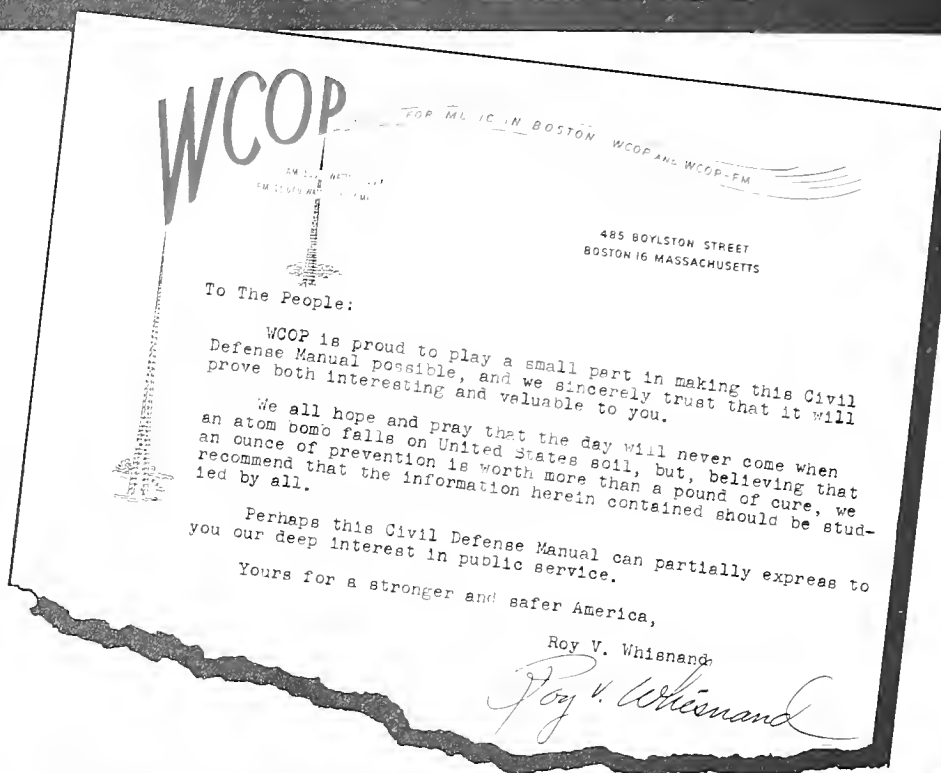 WCOP
FOR IN BOSTON WCOP AND WCOP-FM
AM
FM
485 BOYLSTON STREET
BOSTON 16 MASSACHUSETTS
To The People:
WCOP is proud to play a small part in making this Civil
Defense Manual possible, and we sincerely trust that it will
prove both interesting and valuable to you.
We all hope and pray that the day will never come when
an atom bomb falls on United States soil, but, believing that
an ounce of prevention is worth more than a pound of cure, we
recommend that the information herein contained should be stud-
ied by all.
Perhaps this Civil Defense Manual can partially express to
you our deep interest in public service.
Yours for a stronger and safer America,
Roy V. Whisnand
Roy V. Whisnand